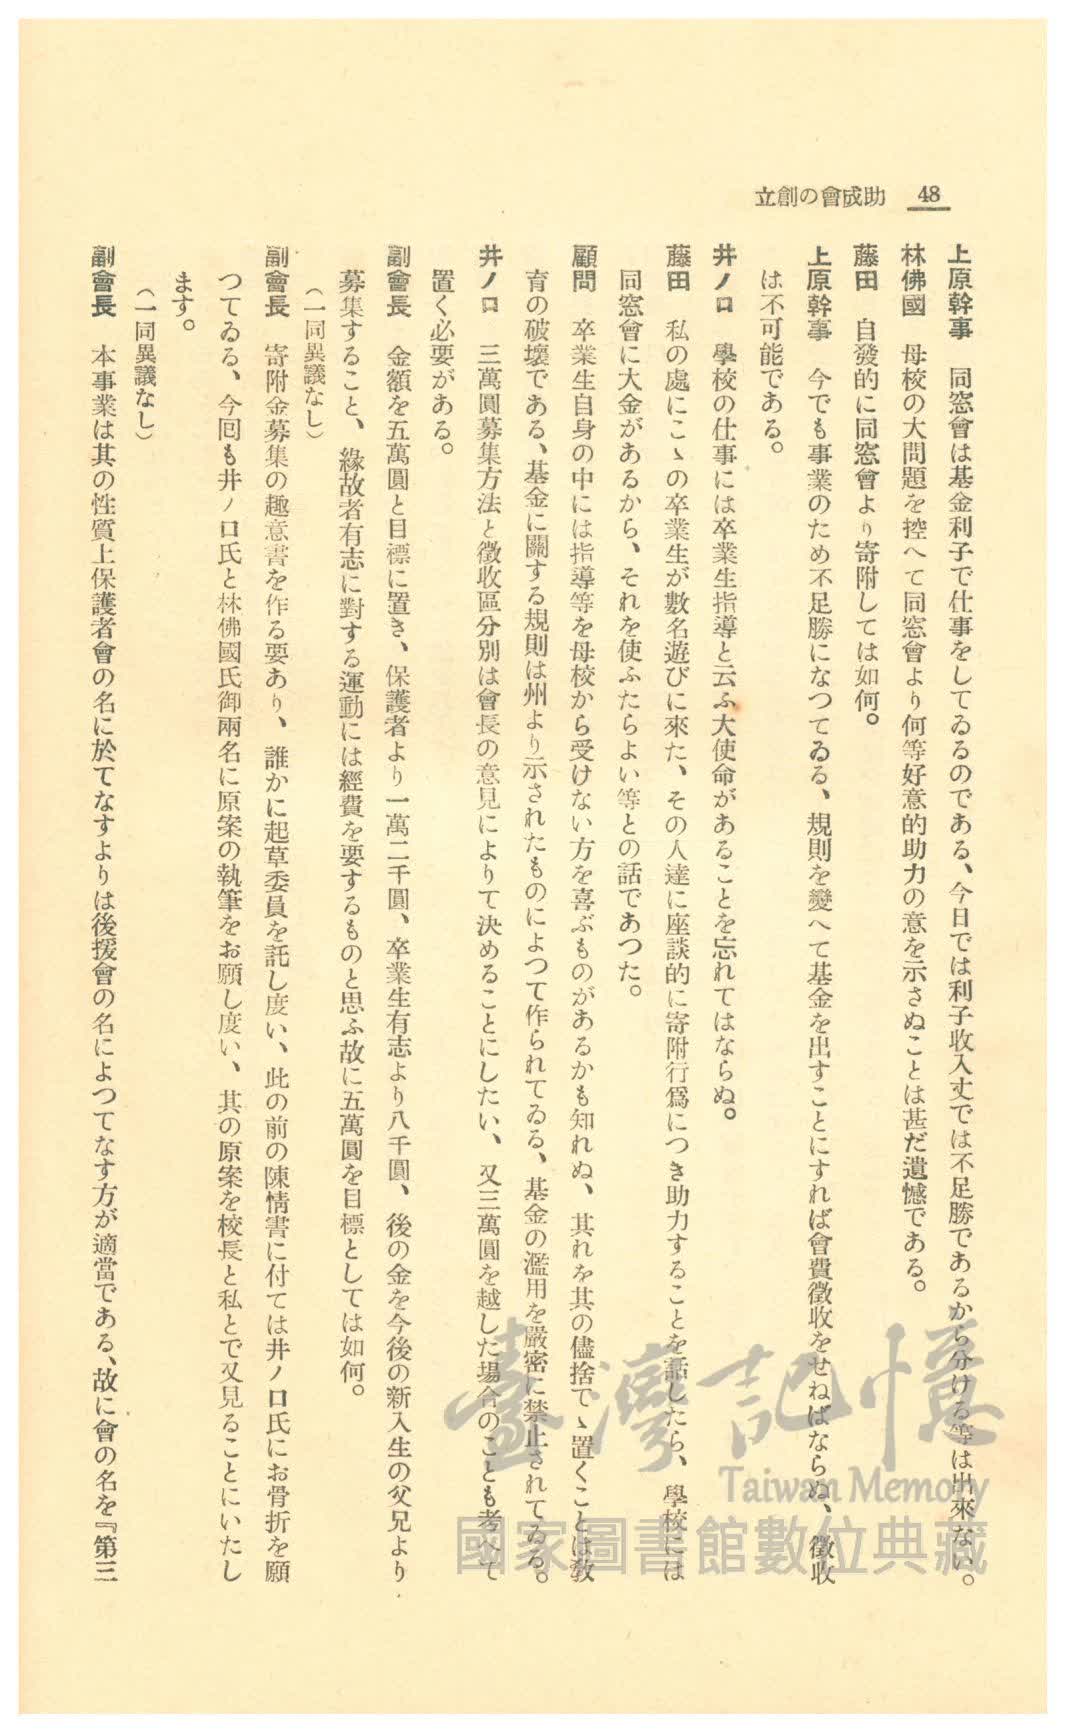 48
立創の會成助
上原幹事　同窓會は基金利子で仕事をしてゐるのである、今日では利子收入丈では不足勝であるから分ける等は出來ない。
林佛國　母校の大問題を控へて同窓會より何等好意的助力の意を示さぬことは甚だ遺憾である。
藤田　自發的に同窓會より寄附しては如何。
上原幹事　今でも事業のため不足勝になつてゐる、規則を變へて基金を出すことにすれば會費徵收をせねばならぬ、徵收
は不可能である。
井ノ口　學校の仕事には卒業生指導と云ふ大使命があることを忘れてはならぬ。
藤田　私の處にこゝの卒業生が數名遊びに來た、その人達に座談的に寄附行爲につき助力することを話したら、學校には
同窓會に大金があるから、それを使ふたらよい等との話であつた。
顧問　卒業生自身の中には指導等を母校から受けない方を喜ぶものがあるかも知れぬ、其れを其の儘捨てゝ置くことは敎
育の破壞である、基金に關する規則は州より示されたものによつて作られてゐる、基金の濫用を嚴密に禁止されてゐる。
井ノ口　三萬圓募集方法と徵收區分別は會長の意見によりて決めることにしたい、又三萬圓を越した場合のことも考へて
置く必要がある。
副會長　金額を五萬圓と目標に置き、保護者より一萬二千圓、卒業生有志より八千圓、後の金を今後の新入生の父兄より
募集すること、緣故者有志に對する運動には經費を要するものと思ふ故に五萬圓を目標としては如何。
（一同異議なし）
副會長　寄附金募集の趣意書を作る要あり、誰かに起草委員を託し度い、此の前の陳情書に付ては井ノ口氏にお骨折を願
つてゐる、今囘も井ノ口氏と林佛國氏御兩名に原案の執筆をお願し度い、其の原案を校長と私とで又見ることにいたし
ます。
（一同異議なし）
副會長　本事業は其の性質上保護者會の名に於てなすよりは後援會の名によつてなす方が適當である、故に會の名を『第三
臺灣記憶
Taiwan Memory
國家圖書館數位典藏